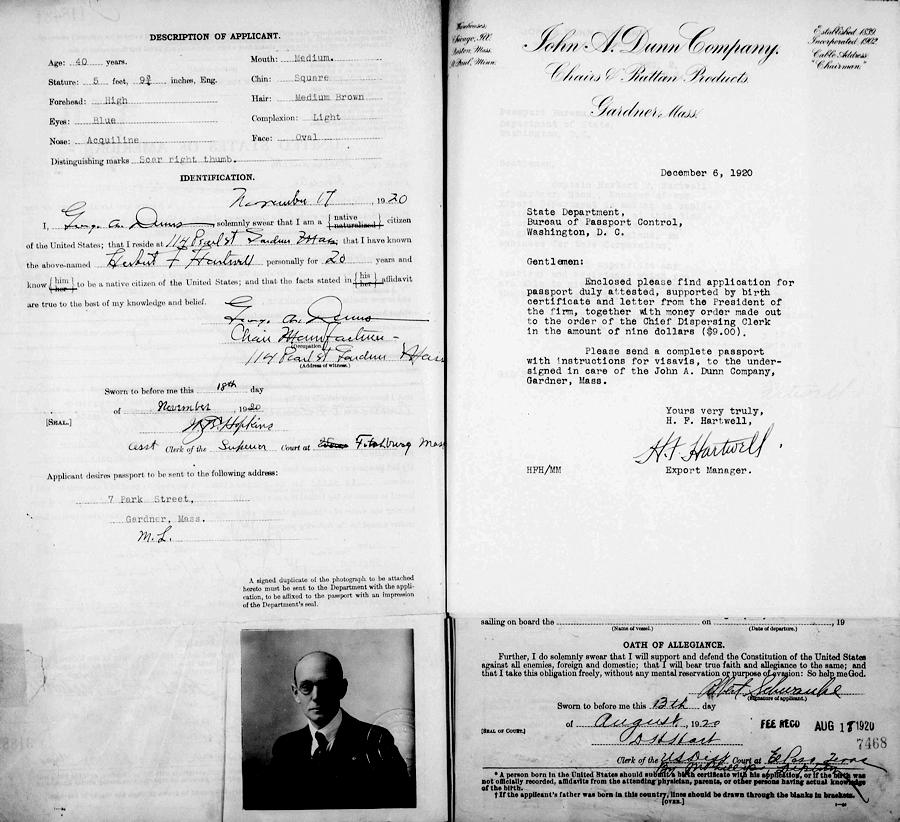 DESCRIPTION OF APPLICANT.
Age: 40 years.
Mouth: Medium.
Stature: 5 feet, 9¾ inches, Eng.
Chin: Square
Forehead: High
Hair: Medium Brown
Eyes: Blue
Complexion: Light
Nose: Acquiline
Face: Oval
Distinguishing marks Scar right thumb.
IDENTIFICATION.
November 17, 1920
I, George A. Dunn solemnly swear that I am a {native naturalized} citizen
of the United States; that I reside at 114 Pearl st Gardner Mass; that I have known
the above-named Herbert F Hartwell personally for 20 years and
know {him her} to be a native citizen of the United States; and that the facts stated in {his her} affidavit
are true to the best of my knowledge and belief.
George A. Dunn
Chair Manufacturer
(Occupation)
114 Pearl st Gardner Mass
(Address of witness.)
Sworn to before me this 18th day
of November, 1920
[SEAL.]
Hopkins
asst Clerk of the Superior Court at Fitchburg Mass
Applicant desires passport to be sent to the following address:
7 Park Street,
Gardner, Mass.
M.L.
A signed duplicate of the photograph to be attached
hereto must be sent to the Department with the appli-
cation, to be affixed to the passport with an impression
of the Department's seal.
Warehouses:
Chicago, Ill.
Boston, Mass.
St Paul, Minn.
John A. Dunn Company,
Chairs & Rattan Products.
Gardner, Mass.
Established 1839
Incorporated 1902
Cable Address
"Chairman."
December 6, 1920
State Department,
Bureau of Passport Control,
Washington, D. C.
Gentlemen:
Enclosed please find application for
passport duly attested, supported by birth
certificate and letter from the President of
the firm, together with money order made out
to the order of the Chief Dispersing Clerk
in the amount of nine dollars ($9.00).
Please send a complete passport
with instructions for visavis, to the under-
signed in care of the John A. Dunn Company,
Gardner, Mass.
Yours very truly,
H. F. Hartwell,
H.F. Hartwell
HFH/MM
Export Manager.
sailing on board the on , 19
(Name of vessel.) (Date of departure.)
OATH OF ALLEGIANCE.
Further, I do solemnly swear that I will support and defend the Constitution of the United States
against all enemies, foreign and domestic; that I will bear true faith and allegiance to the same; and
that I take this obligation freely, without any mental reservation or purpose of evasion: So help me God.
(Signature of applicant.)
Sworn to before me this 13th day
of August, 1920
FEE RECD AUG 17 1920
7468
[SEAL OF COURT.]
Clerk of the US Dist Court at El Paso Texas
* A person born in the United States should submit a birth certificate with his application, or if the birth was
not officially recorded, affidavits from the attending physician, parents, or other persons having actual knowledge
of the birth.
† If the applicant's father was born in this country, lines should be drawn through the blanks in brackets.
[OVER.]